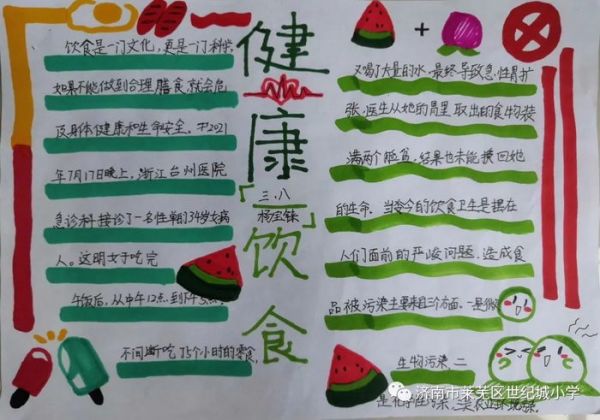 饮食是一门文化,更是一门科学
如果不能做到合理膳食就会危
及身体健康和生命安全。于2021
年7月17日晚上,浙江台州医院
急诊科接诊了一名姓单的34岁女病
人。这明女子吃完
午饭后,从中午12点到下午3点
不间断吃了5个小时的零食,
健
康
三、八
饮
食
又喝了大量的水,最终导致急性胃扩
张,医生从她的胃里取出的食物装
满两个脸盆,结果也未能挽回她
的生命。当今今的饮食卫生是摆在
人们面前的严峻问题,造成食
品被污染主要来自三个方面。一是
生物污染,二
济南市莱芜区世纪城小学